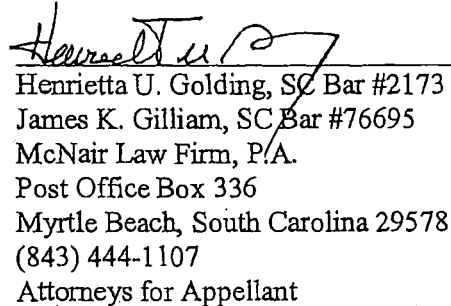 Henrietta U. Golding, SC Bar #2173
James K. Gilliam, SC Bar #76695
McNair Law Firm, P.A.
Post Office Box 336
Myrtle Beach, South Carolina 29578
(843) 444-1107
Attorneys for Appellant